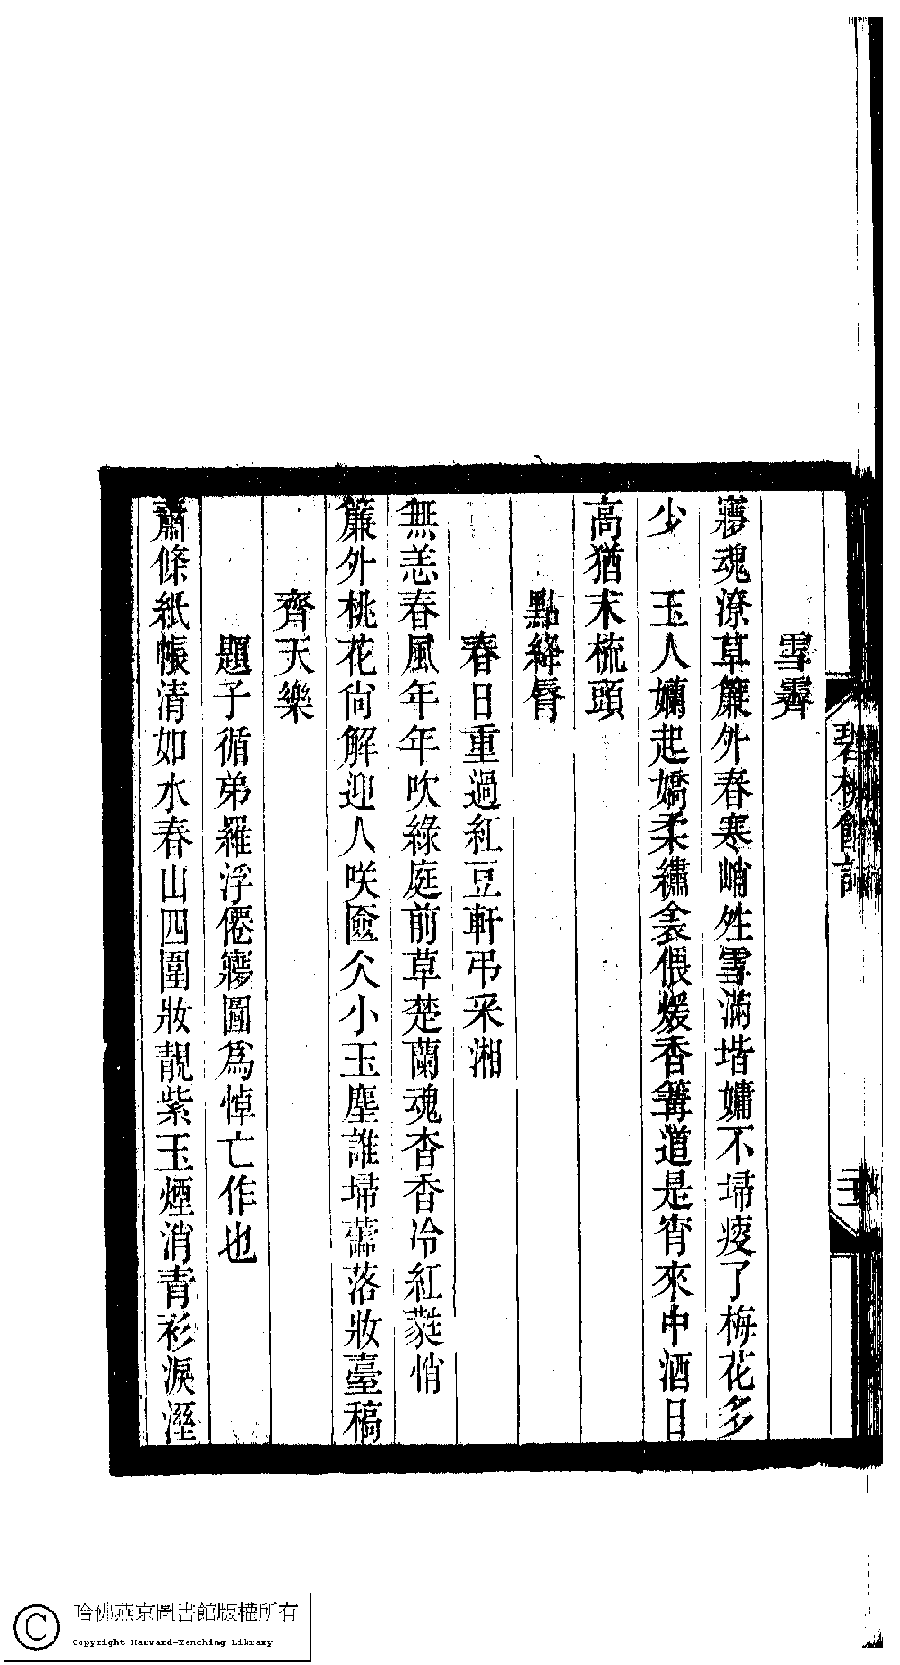 雪霽
㝱魂潦草簾外春寒峭姓雪滿堦嫞不埽瘦了梅花多
少　玉人嬾起嬌柔繡衾偎煖香篝道是宵來中酒日
高猶未梳頭
點絳脣
春日重過紅豆軒弔采湘
無恙春風年年吹綠庭前草楚蘭魂杳香冷紅蕤悄
簾外桃花尙解迎人咲匳仌小玉塵誰埽蕭落妝臺稿
齊天樂
題子循弟羅浮僊㝱圖爲悼亡作也
蕭條紙帳清如水春山四圍妝靚紫玉煙消青衫淚溼
碧桃館詞
三
哈佛燕京圖書館版權所有
Copyright Harvard-Yenching Library